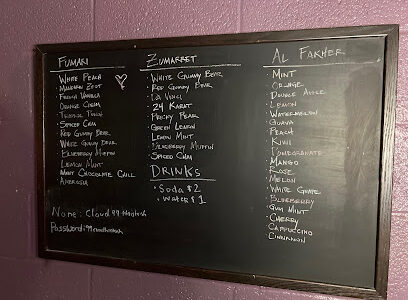 Fumari
White Peach
Mandarin Zest
French Vanilla
Orange Cream
Spiced Chai
Red Gummy Bear
White Gummy Bear
Blueberry Muffin
Lemon Mint
Mint Chocolate Chill
Ambrosia
Name: Cloud99
Password: 99
Zumarret
White Gummy Bear
Red Gummy Bear
Da Vinci
24 Karat
Prickly Pear
Green Lemon
Lemon Mint
Blueberry Muffin
Spiced Chai
Drinks
Soda $2
Water $1
Al Fakher
Mint
Orange
Double Apple
Lemon
Watermelon
Guava
Peach
Kiwi
Pomegranate
Mango
Rose
Melon
White Grape
Blueberry
Gum Mint
Cherry
Cappuccino
Cinnamon